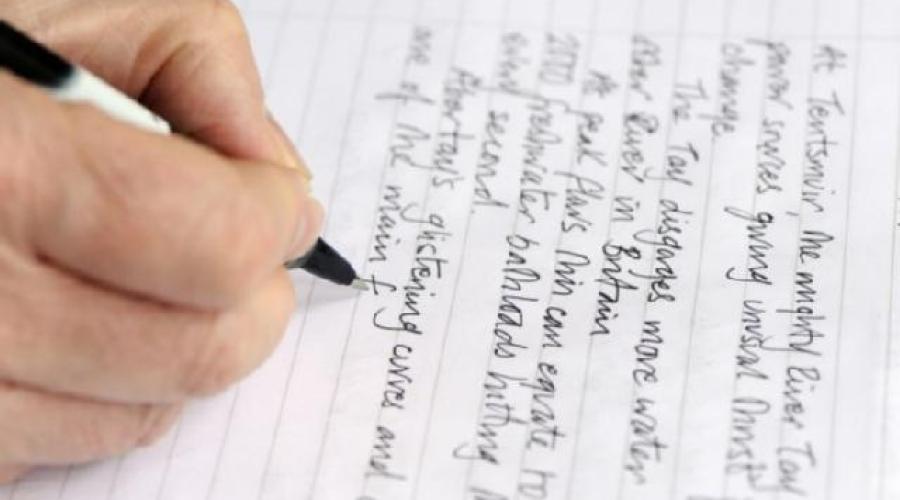 At Tentsmuir the mighty River Tay
power sources giving unusual thrust
change.
The Tay disgarges more water
other River in Britain
At peak flows this can equate to
2000 freshwater bathloads hitting
every second.
Abertay's glistening curves and
one of the main f